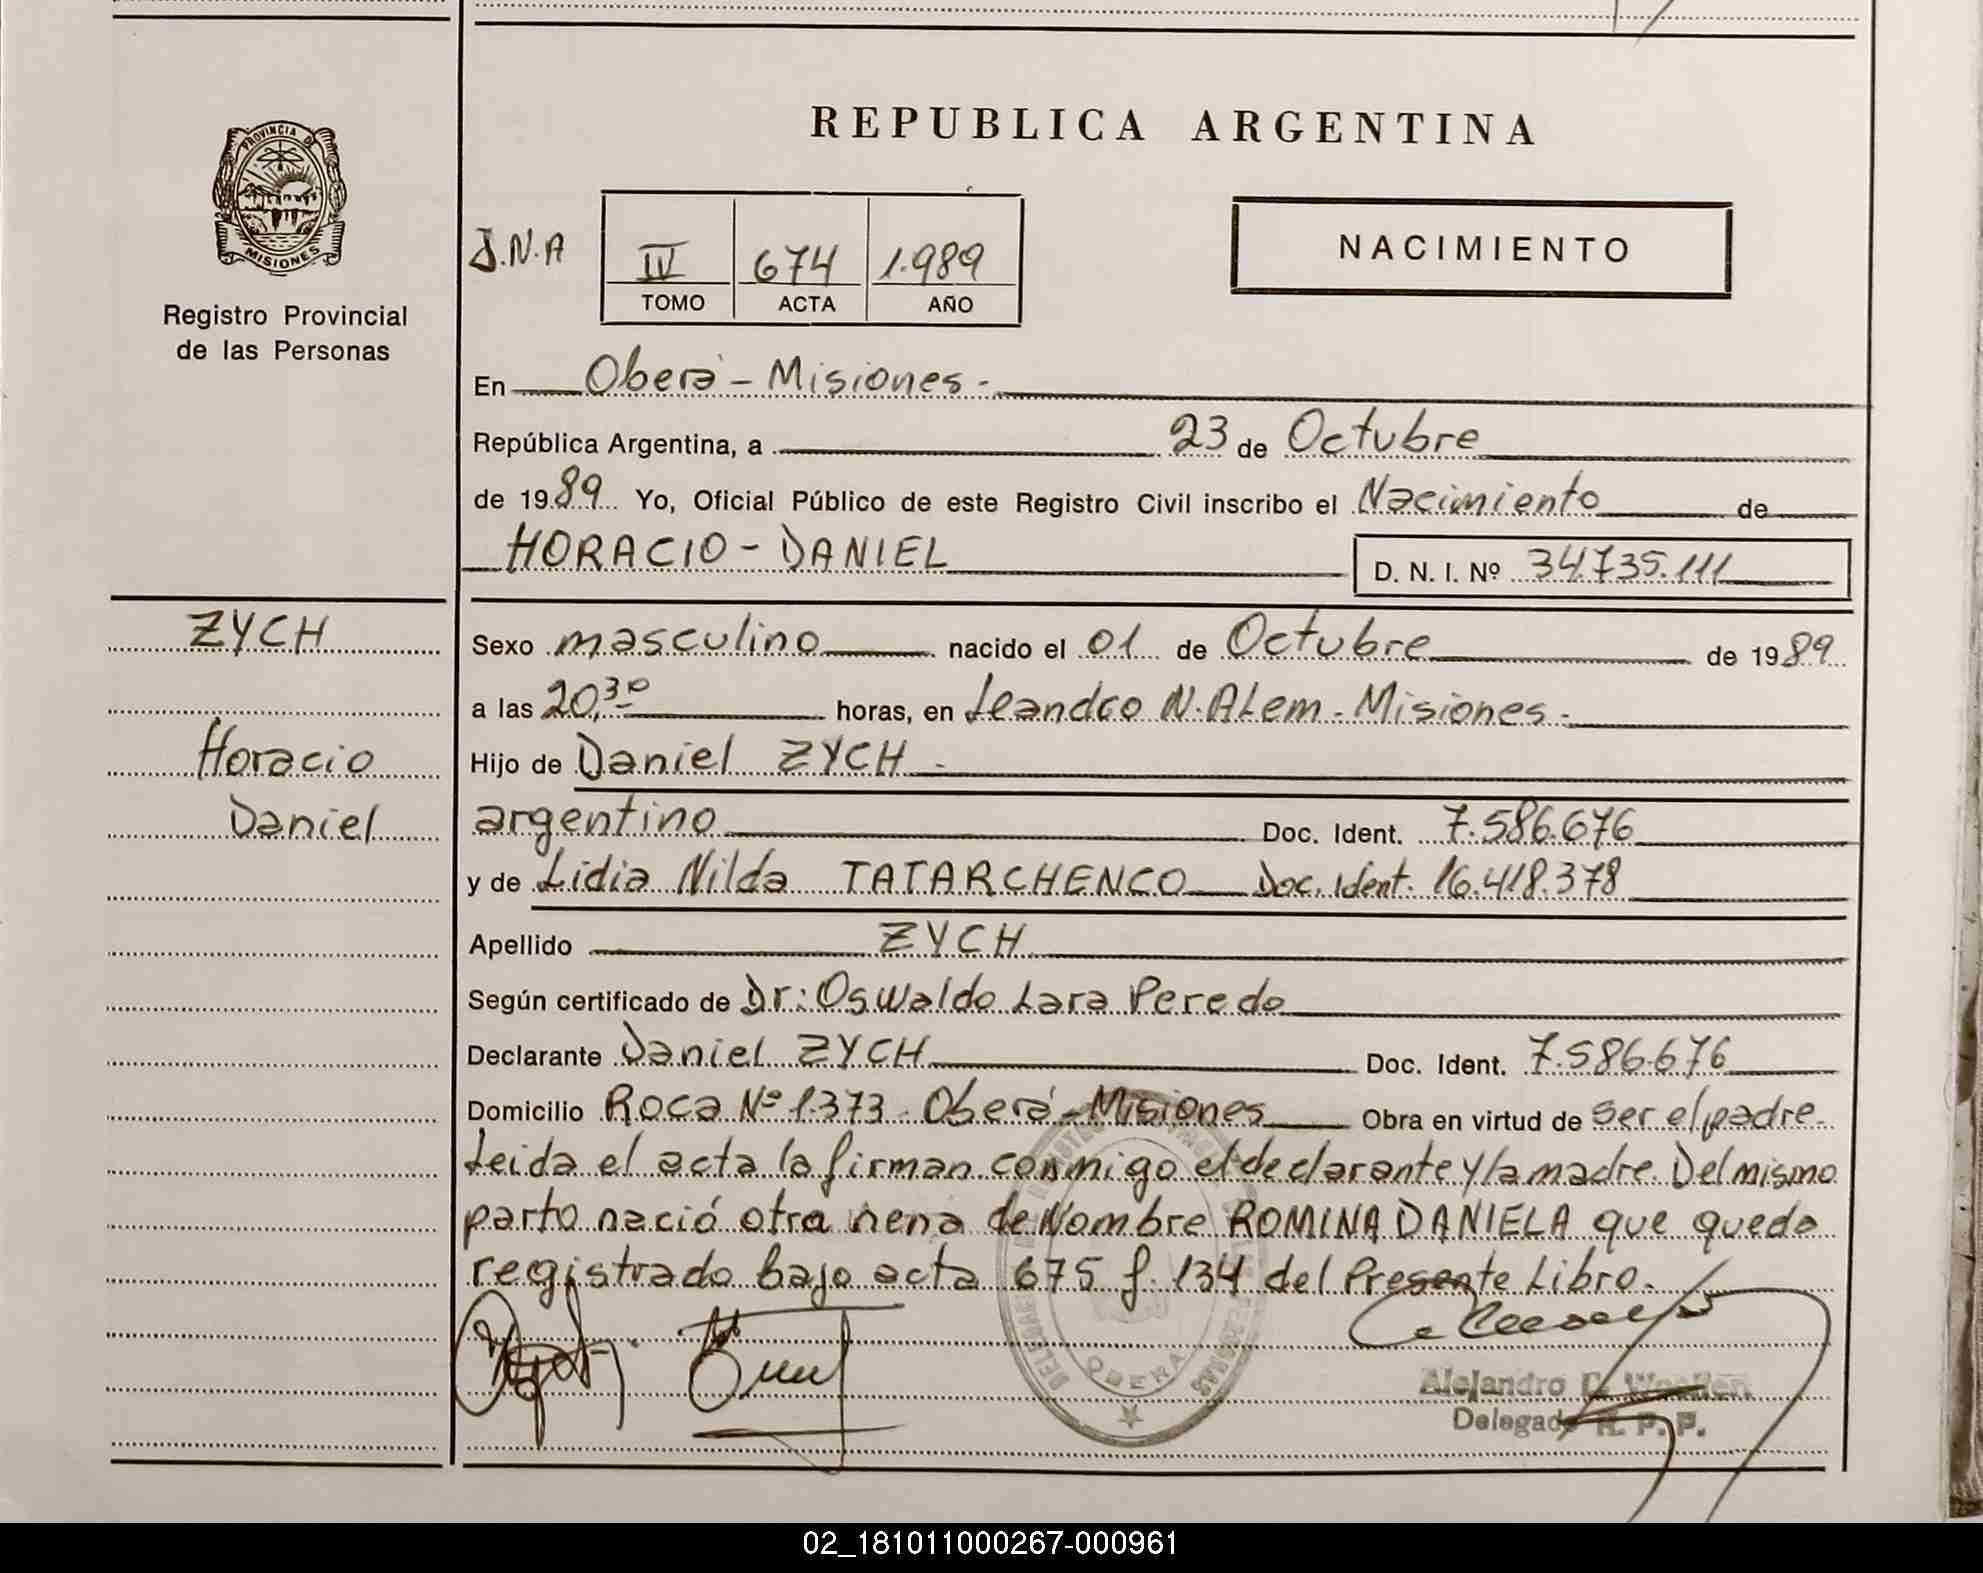 REPUBLICA ARGENTINA
PROVINCIA DE
MISIONES
Registro Provincial
de las Personas
J.N.A
IV 674 1.989
TOMO ACTA AÑO
NACIMIENTO
En Oberá - Misiones.
República Argentina, a 23 de Octubre
de 1989. Yo, Oficial Público de este Registro Civil inscribo el Nacimiento de
HORACIO - DANIEL D. N. I. Nº 34.735.111
ZYCH
Horacio
Daniel
Sexo masculino nacido el 01 de Octubre de 1989
a las 20,30 horas, en Leandro N. ALem - Misiones -
Hijo de Daniel ZYCH -
argentino Doc. Ident. 7.586.676
y de Lidia Nilda TATARCHENCO Doc. Ident. 16.418.378
Apellido ZYCH
Según certificado de Dr: Oswaldo Lara Peredo
Declarante Daniel ZYCH Doc. Ident. 7.586.676
Domicilio Roca Nº 1.373 - Oberá - Misiones Obra en virtud de ser el padre.
Leida el acta la firman conmigo el declarante y la madre. Del mismo
parto nació otra nena de Nombre ROMINA DANIELA que queda
registrado bajo acta 675 f. 134 del Presente Libro.
OBERA
Alejandro
Delegado R. P. P.
02_181011000267-000961